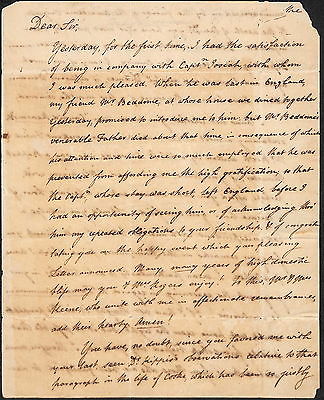 the
Dear Sir,
Yesterday, for the first time, I had the satisfaction
of being in company with Captn. Josiah, with whom
I was much pleased. When he was last in England,
my friend Mr. Beddome, at whose house we dined together
yesterday, promised to introduce me to him, but Mr Beddome's
venerable Father died about that time in consequence of which
his attention and mind were so much employed that he was
prevented from affording me the high gratification, so that
the Captn. whose stay was short, left England, before I
had an opportunity of seeing him, or of acknowledging thro'
him my repeated obligations to your friendship, & of congra-
tulating you on the happy event which your pleasing
Letters announced. Many, many years of high domestic
bliss may you & Mrs Rogers enjoy! To this, Mr & Mrs
Keene, who unite with me in affectionate remembrance,
add their hearty Amen!
You have, no doubt, since you favored me with
your last, seen Dr. Kippis's observations relative to that
paragraph in the life of Cooke, which has been so justly